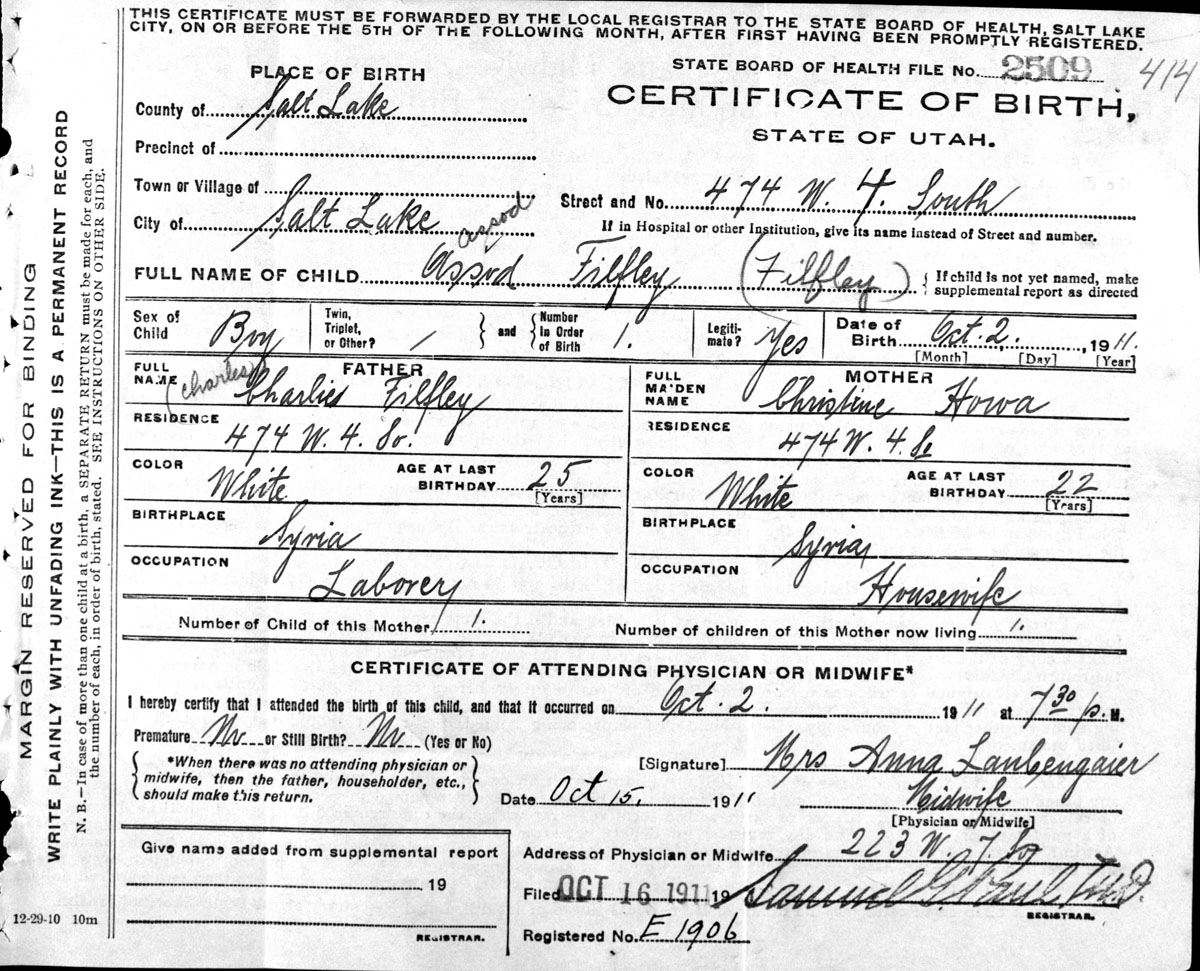 THIS CERTIFICATE MUST BE FORWARDED BY THE LOCAL REGISTRAR TO THE STATE BOARD OF HEALTH, SALT LAKE
CITY, ON OR BEFORE THE 5TH OF THE FOLLOWING MONTH, AFTER FIRST HAVING BEEN PROMPTLY REGISTERED.
STATE BOARD OF HEALTH FILE No. 2509 414
CERTIFICATE OF BIRTH,
STATE OF UTAH.
PLACE OF BIRTH
County of Salt Lake
Precinct of
Town or Village of
City of Salt Lake
Street and No. 474 W. 4. South
If in Hospital or other Institution, give its name instead of Street and number.
assod
FULL NAME OF CHILD Assod Filfley (Filfley) { If child is not yet named, make
supplemental report as directed
Sex of Child Boy
Twin, Triplet, or Other? /
and { Number In Order of Birth 1.
Legiti-mate? Yes
Date of Birth Oct. 2. 1911.
[Month] [Day] [Year]
FATHER
FULL NAME (Charles) Charlies Filfley
RESIDENCE 474 W. 4. So.
COLOR White
AGE AT LAST BIRTHDAY 25 [Years]
BIRTHPLACE Syria
OCCUPATION Laborer
MOTHER
FULL MAIDEN NAME Christine Howa
RESIDENCE 474 W. 4. So
COLOR White
AGE AT LAST BIRTHDAY 22 [Years]
BIRTHPLACE Syria
OCCUPATION Housewife
Number of Child of this Mother 1.
Number of children of this Mother now living 1.
CERTIFICATE OF ATTENDING PHYSICIAN OR MIDWIFE*
I hereby certify that I attended the birth of this child, and that it occurred on Oct. 2. 1911 at 7 30 p. M.
Premature No or Still Birth? No (Yes or No)
{ *When there was no attending physician or
midwife, then the father, householder, etc.,
should make this return. }
[Signature] Mrs Anna Laubengaier
Date Oct 15. 1911
Midwife
[Physician or Midwife]
Address of Physician or Midwife 223 W. 7. So
Filed OCT 16 1911 19 Samuel G. Paul M.D.
REGISTRAR.
Registered No. E 1906
Give name added from supplemental report
19
REGISTRAR.
12-29-10 10m
MARGIN RESERVED FOR BINDING
WRITE PLAINLY WITH UNFADING INK—THIS IS A PERMANENT RECORD
N. B.—In case of more than one child at a birth, a SEPARATE RETURN must be made for each, and
the number of each, in order of birth, stated. SEE INSTRUCTIONS ON OTHER SIDE.